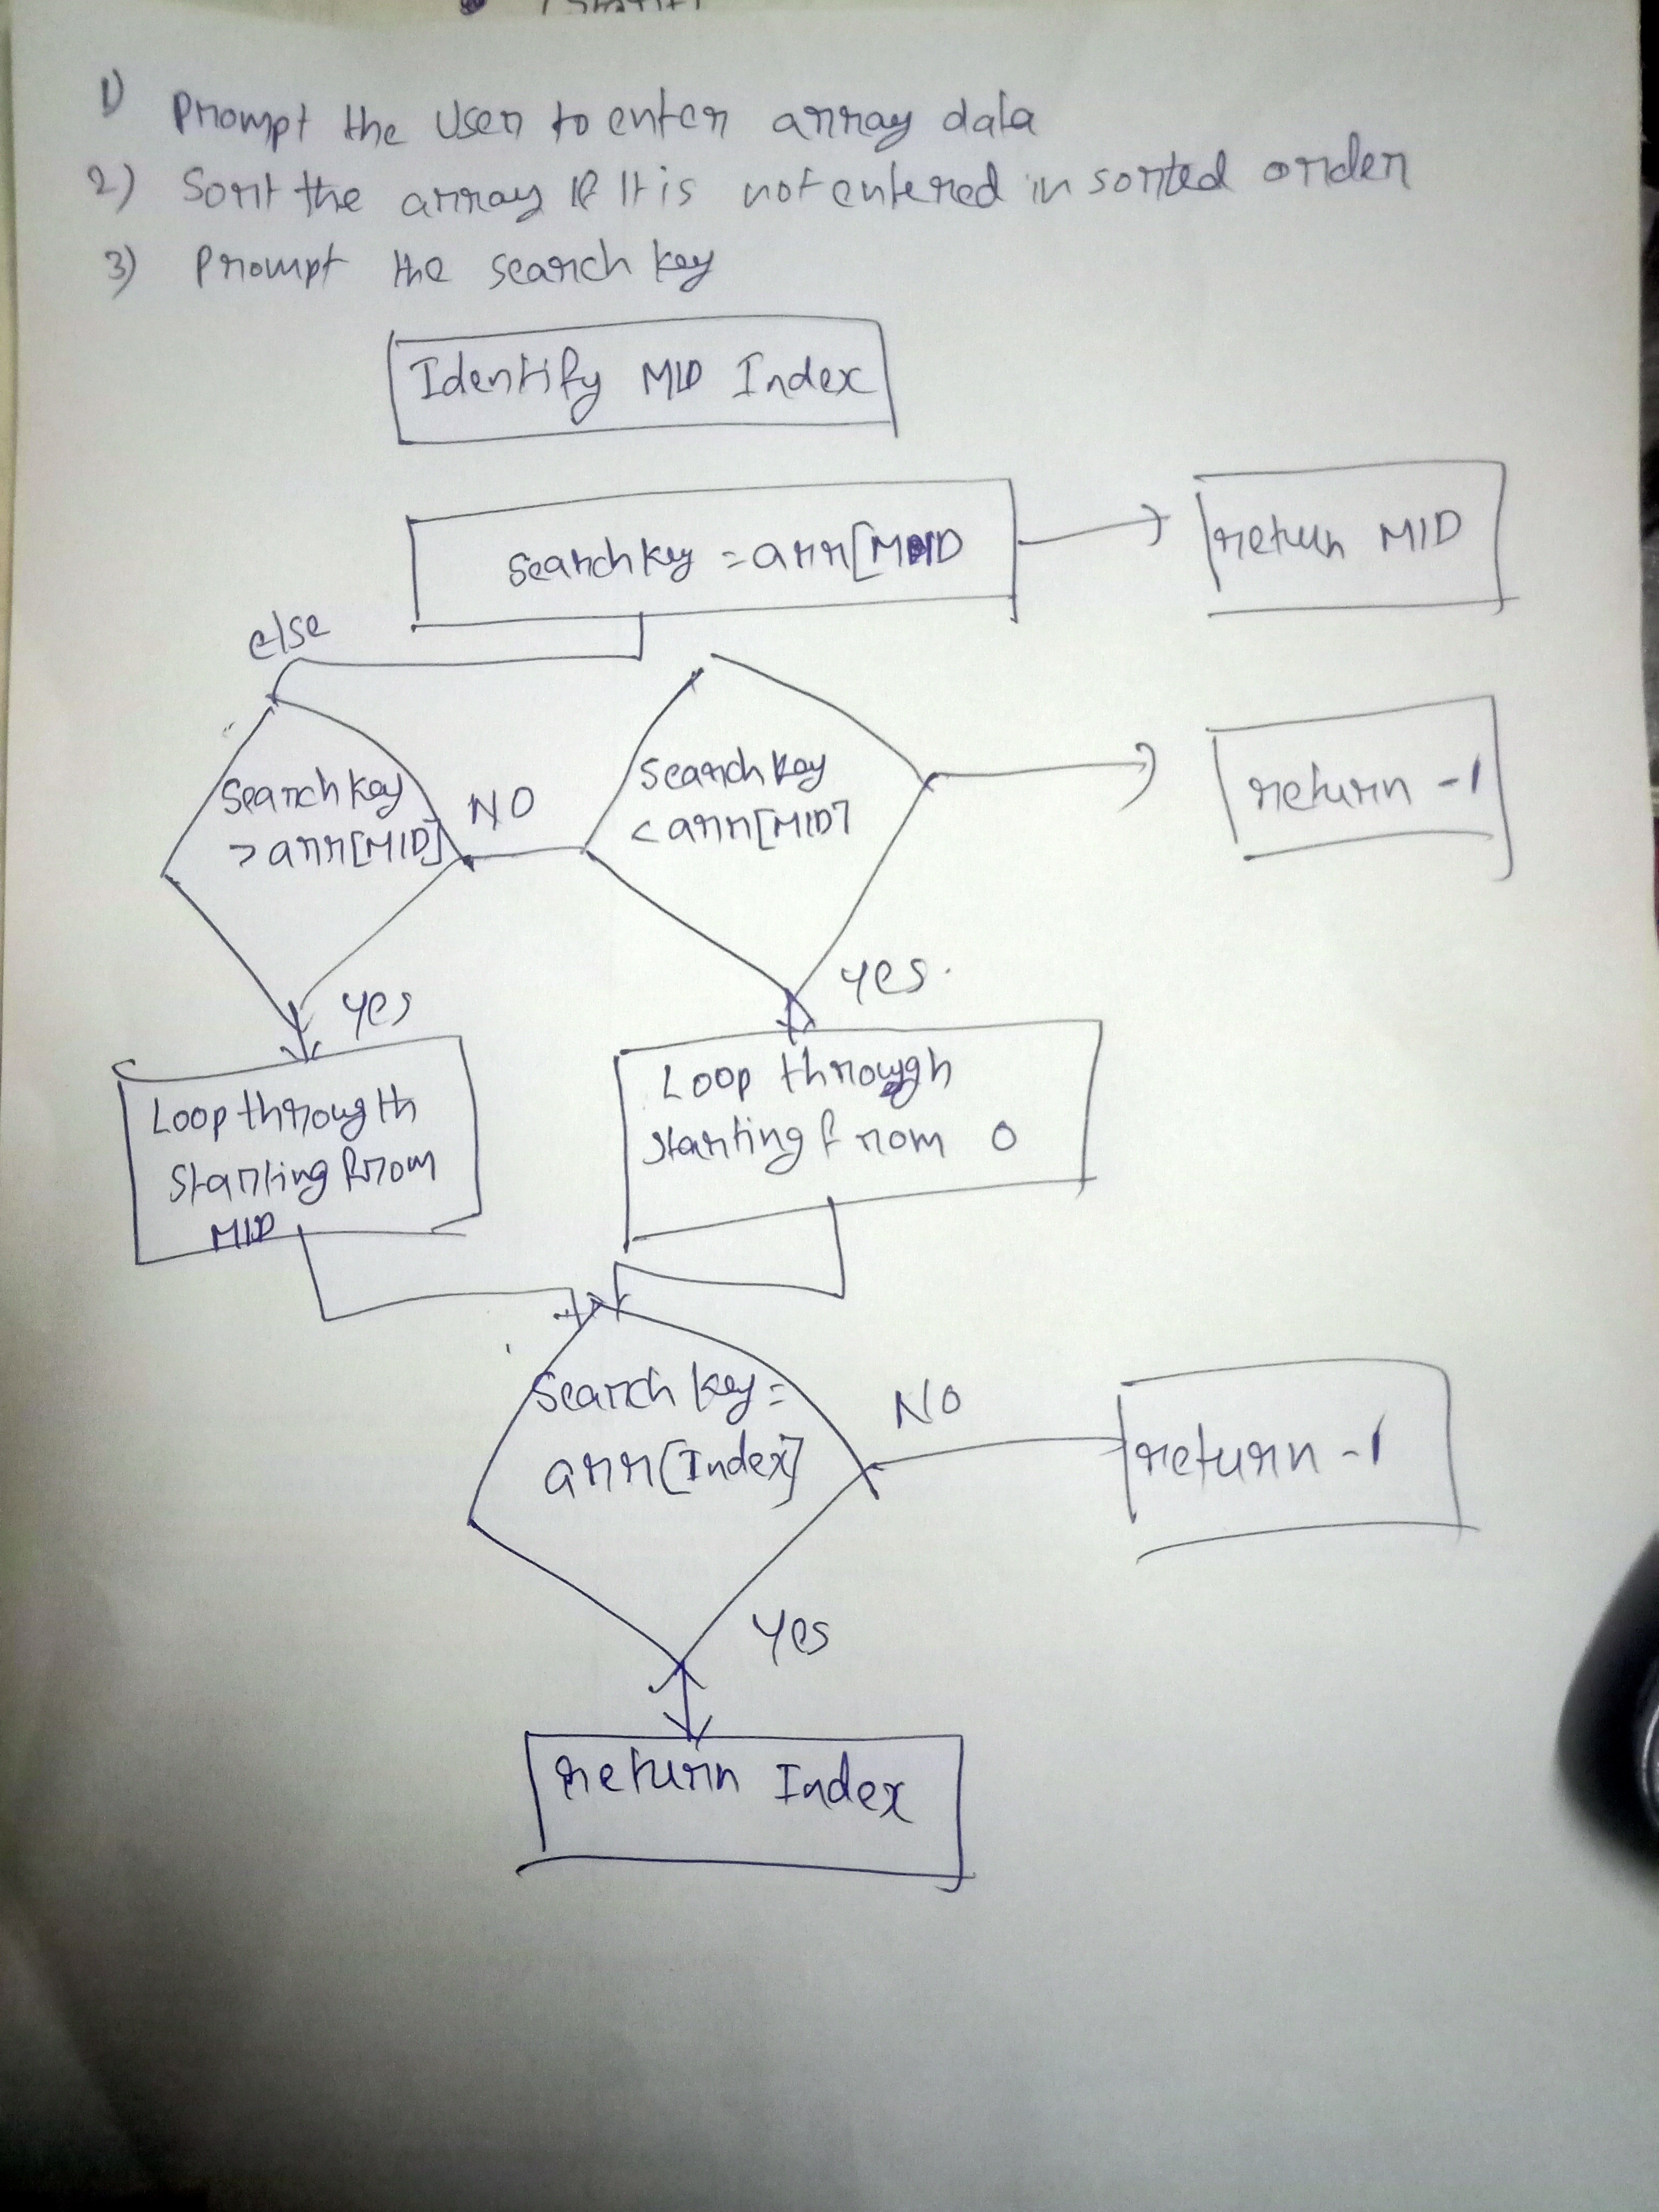 1) Prompt the User to enter array data
2) Sort the array If It is not entered in sorted order
3) Prompt the search key
Identify MID Index
Search key = arr[MID
return MID
else
Search key
> arr[MID]
NO
Search key
< arr[MID]
return -1
yes
yes.
Loop throught
Starting from
MID
Loop through
starting from 0
Search key =
arr[Index]
NO
return -1
yes
return Index